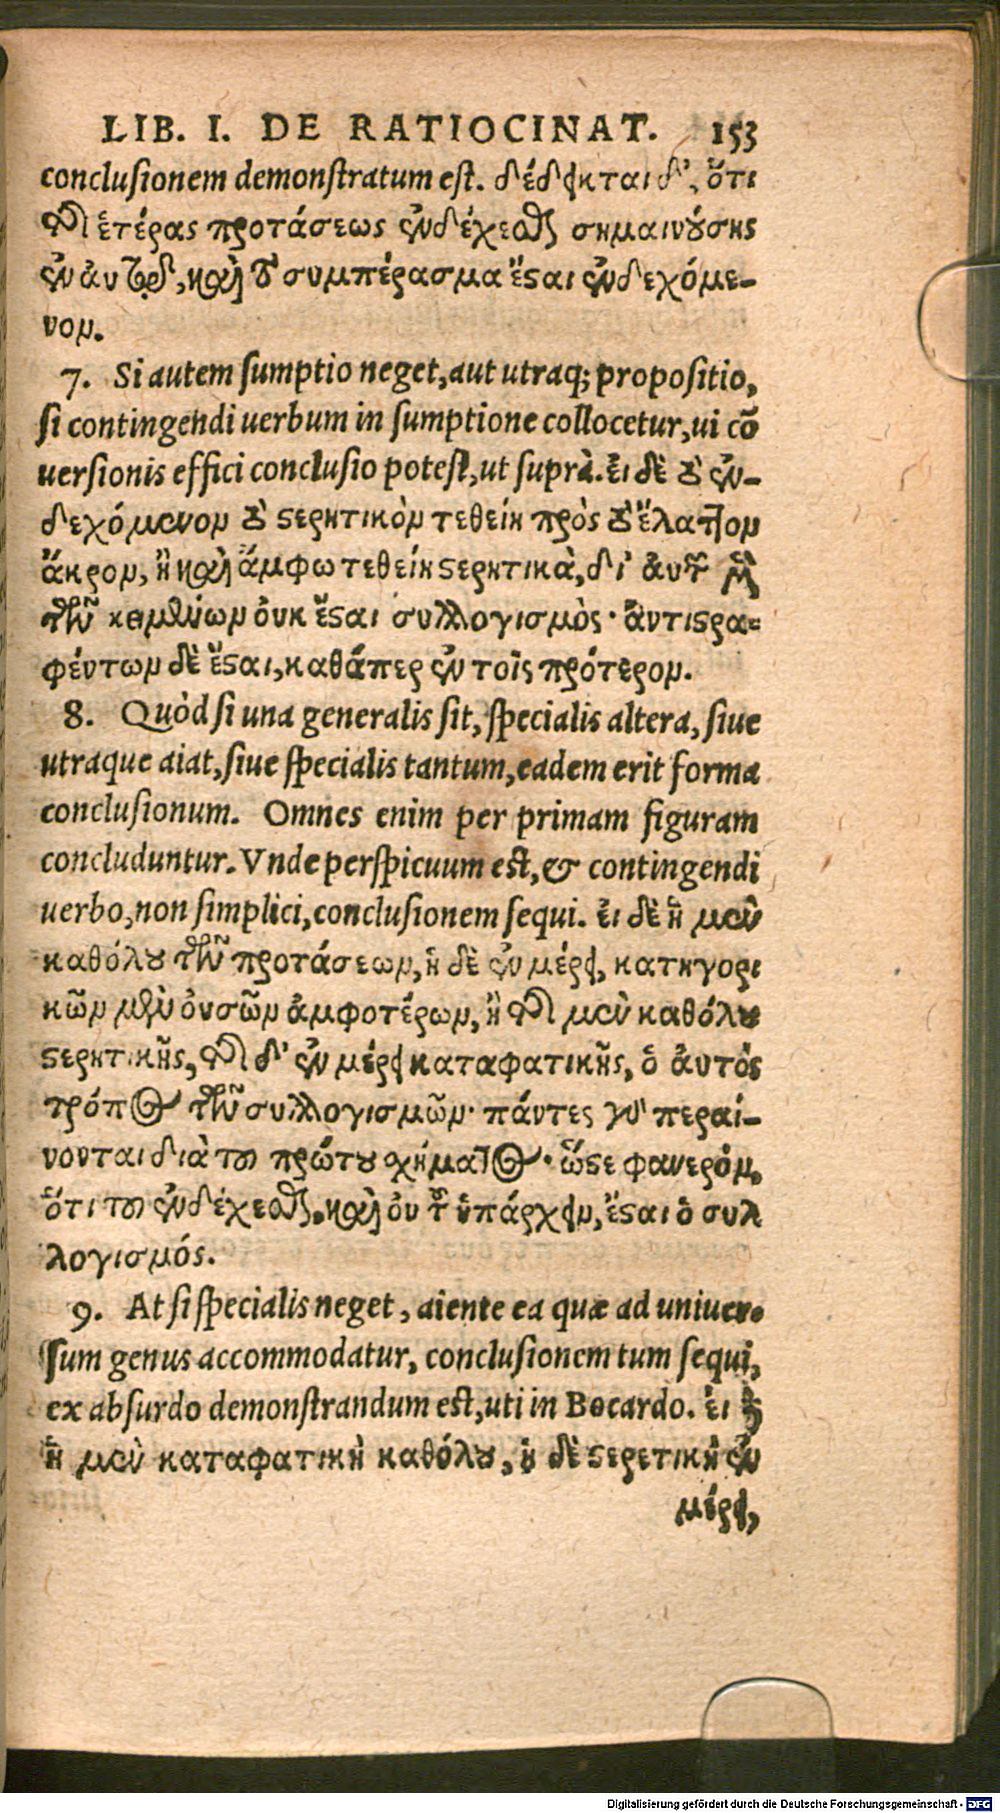 LIB. I. DE RATIOCINAT. 153
conclusionem demonstratum est. δέδεικται δ', ὅτι
τῆς ἑτέρας προτάσεως ἐνδέχεσθαι σημαινούσης
ἐν αὐταῖς, καὶ τὸ συμπέρασμα ἔσαι ἐνδεχόμε-
νον.
7. Si autem sumptio neget, aut utraq; propositio,
si contingendi uerbum in sumptione collocetur, ui cō
uersionis effici conclusio potest, ut suprà. εἰ δὲ τὸ ἐν-
δεχόμενον τὸ ϛερητικὸν τεθείη πρὸς τὸ ἔλαττον
ἄκρον, ἢ καὶ ἄμφω τεθείη ϛερητικὰ, δι' αὐτῶν μὲν
τῶν κειμένων οὐκ ἔϛαι συλλογισμὸς· ἀντιϛρα-
φέντων δὲ ἔϛαι, καθάπερ ἐν τοῖς πρότερον.
8. Quòd si una generalis sit, specialis altera, siue
utraque aiat, siue specialis tantum, eadem erit forma
conclusionum. Omnes enim per primam figuram
concluduntur. Vnde perspicuum est, & contingendi
uerbo, non simplici, conclusionem sequi. εἰ δὲ ἡ μὲν
καθόλου τῶν προτάσεων, ἡ δὲ ἐν μέρει, κατηγορι
κῶν μὲν οὐσῶν ἀμφοτέρων, ἢ τῆς μὲν καθόλου
ϛερητικῆς, τῆς δ' ἐν μέρει καταφατικῆς, ὁ αὐτὸς
τρόπος τῶν συλλογισμῶν· πάντες γὰρ περαί-
νονται διὰ τοῦ πρώτου χήματος· ὥϛε φανερὸν,
ὅτι τοῦ ἐνδέχεσθαι, καὶ οὐ τοῦ ὑπάρχειν, ἔϛαι ὁ συλ
λογισμός.
9. At si specialis neget, aiente ea quæ ad uniuer-
sum genus accommodatur, conclusionem tum sequi,
ex absurdo demonstrandum est, uti in Bocardo. εἰ δ'
ἡ μὲν καταφατικὴ καθόλου, ἡ δὲ ϛερετικὴ ἐν
μέρει,
Digitalisierung gefördert durch die Deutsche Forschungsgemeinschaft - DFG